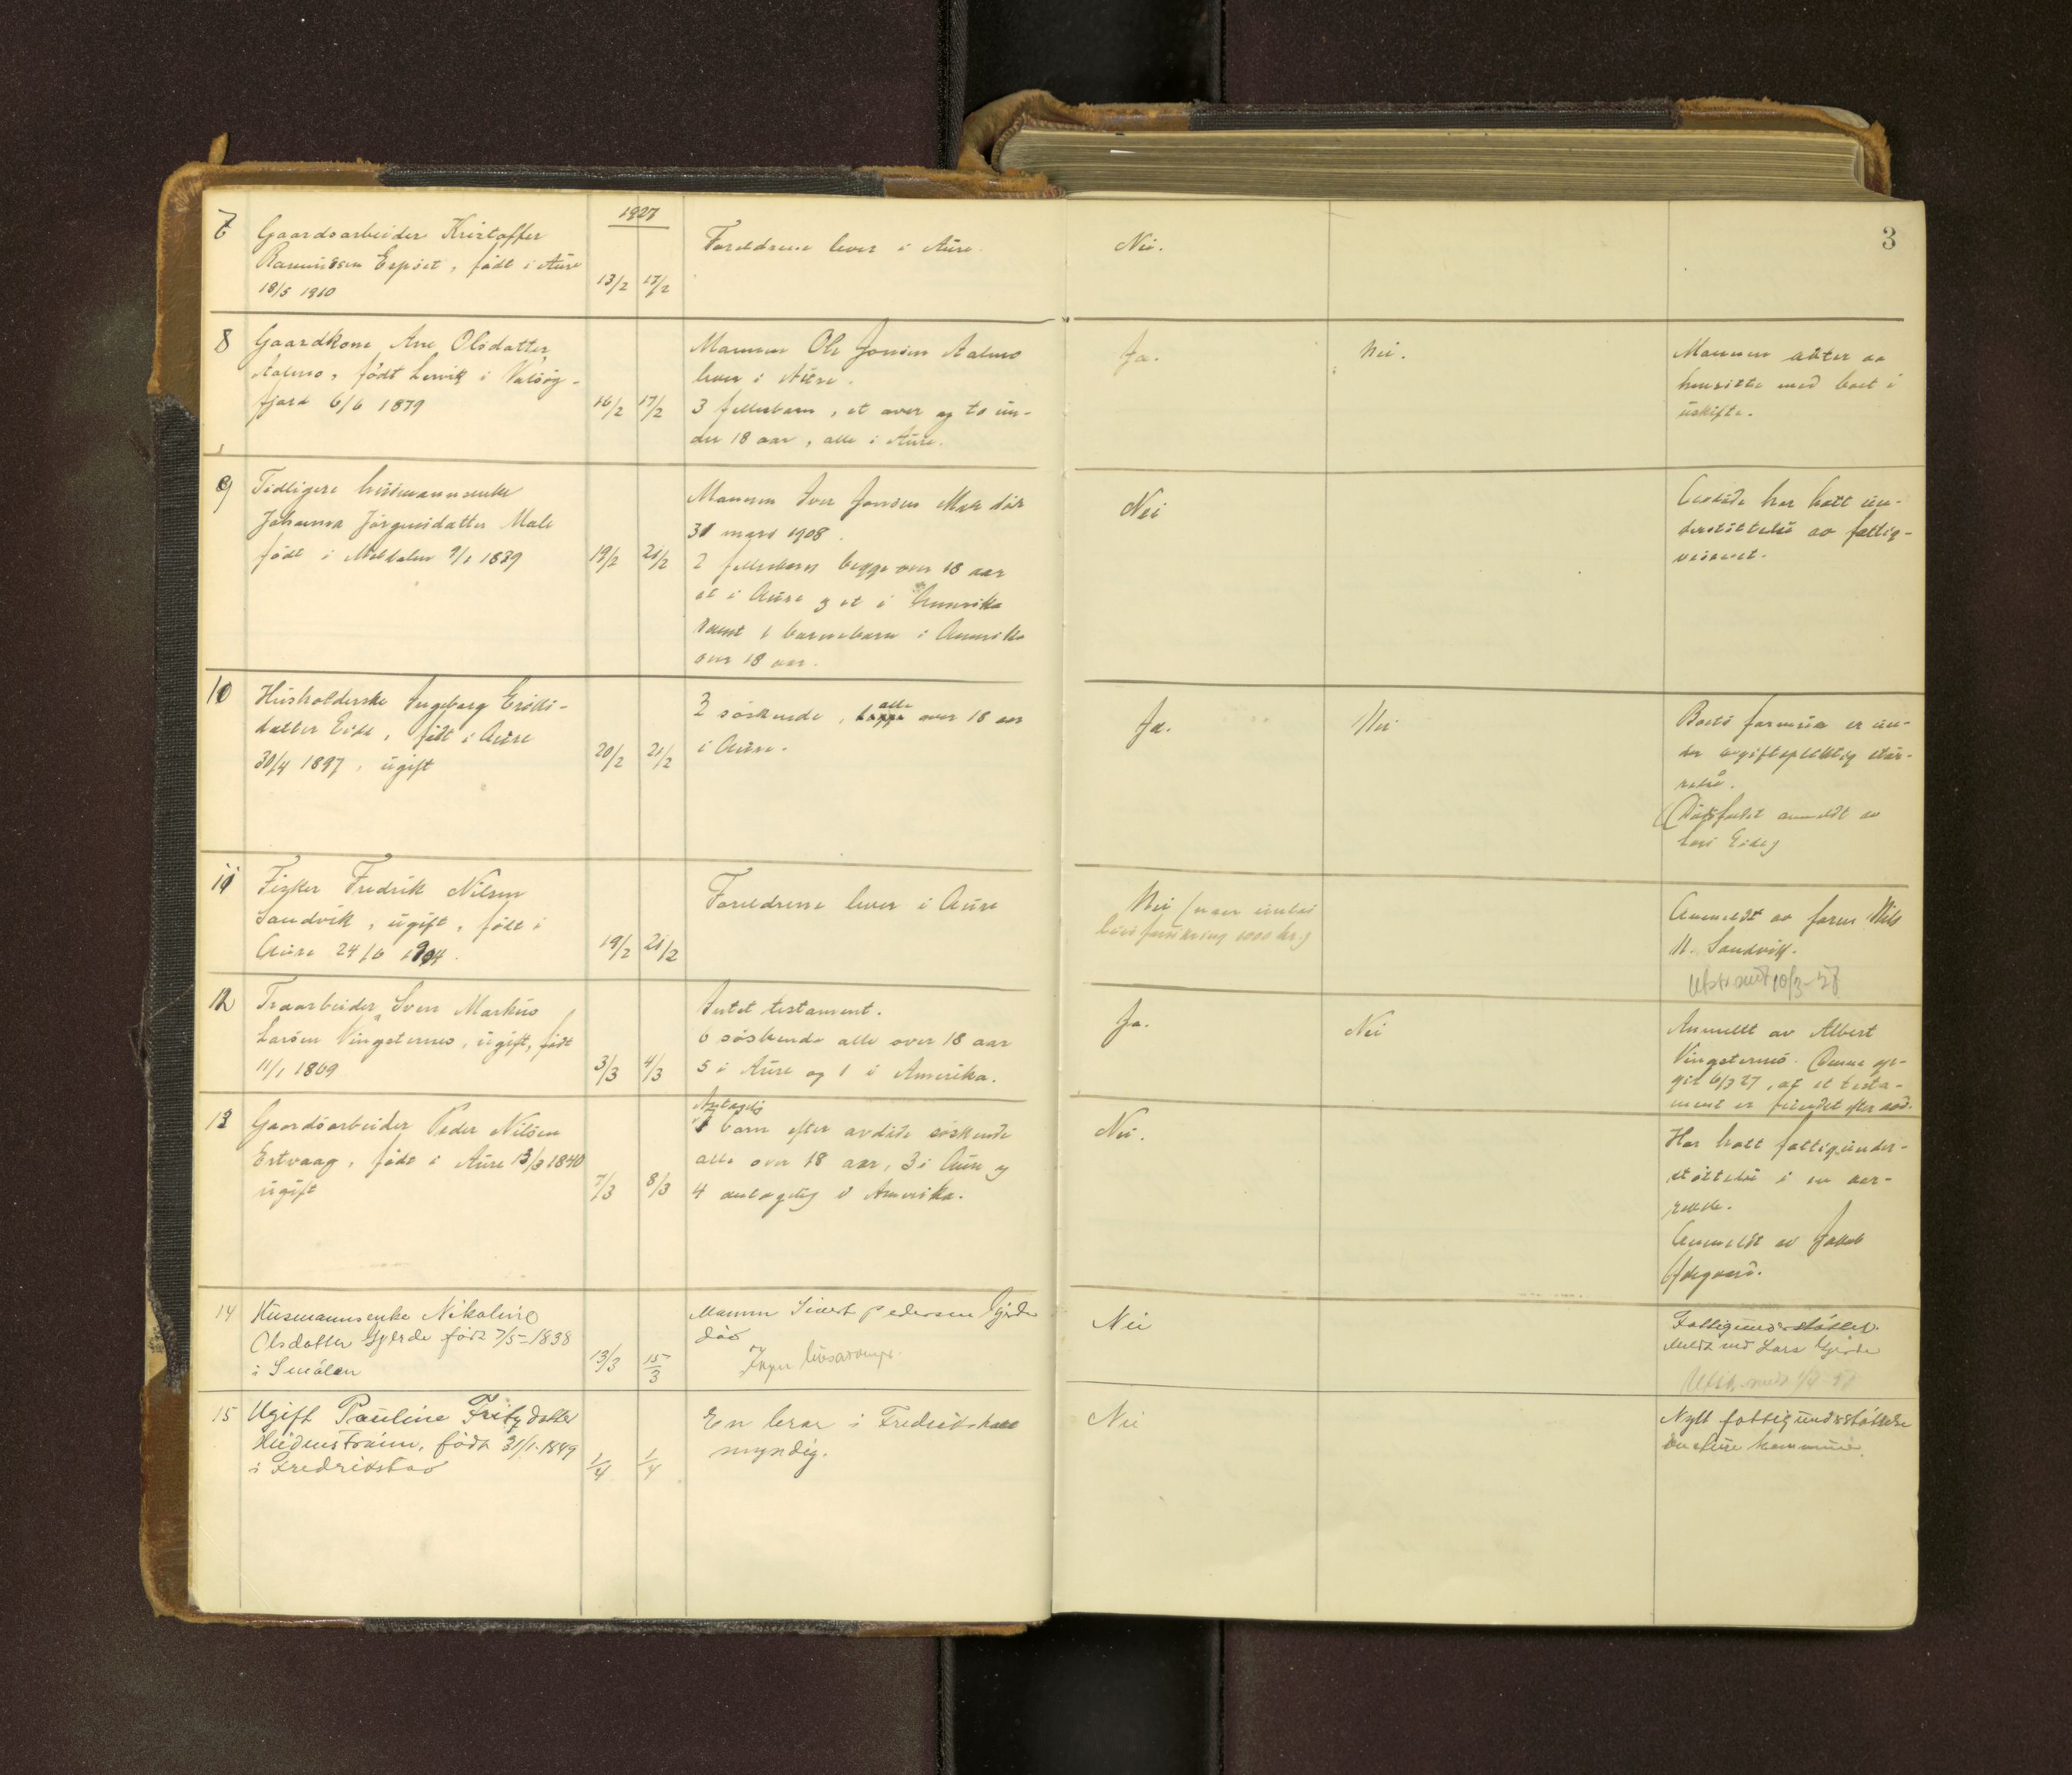 1927
3
7 Gaardsarbeider Kristoffer
Rasmussen Espset, født i Aure
18/5 1910
13/2 17/2
Foreldrene lever i Aure.
Nei.
8 Gaardkone Ane Olsdatter
Aalmo, født Lervik i Valsøy-
fjord 6/6 1879
16/2 17/2
Mannen Ole Jonsen Aalmo
lever i Aure.
3 fellesbarn, et over og to un-
der 18 aar, alle i Aure.
Ja.
Nei.
Mannen akter aa
hensitte med boet i
uskifte.
9 Tidligere husmannsenke
Johanna Jørgensdatter Male
født i Meldalen 9/1 1839
19/2 21/2
Mannen Iver Jonsen Male død
31 mars 1908.
2 fellesbarn begge over 18 aar
et i Aure og et i Amerika
samt 1 barnebarn i Amerika
over 18 aar.
Nei
Avdøde har hatt un-
derstøttelse av fattig-
vesenet.
10 Husholderske Ingeborg Eriks-
datter Eide, født i Aure
30/4 1897, ugift
20/2 21/2
3 søskende, begge alle over 18 aar
i Aure.
Ja.
Nei
Boets formue er un-
der avgiftspliktig stør-
relse.
(Dødsfallet anmeldt av
Lars Eide)
11 Fisker Fredrik Nilsen
Sandvik, ugift, født i
Aure 24/6 1904.
19/2 21/2
Foreldrene lever i Aure
Nei
livsforsikring 1000 kr.)
Anmeldt av faren Nils
N. Sandvik.
10/3-27
12 Traarbeider Sven Markus
Larsen Vingsternes, ugift, født
11/1 1869
3/3 4/3
Intet testament.
6 søskende alle over 18 aar
5 i Aure og 1 i Amerika.
Ja.
Nei
Anmeldt av Albert
Vingsternes. Denne op-
gir 6/3 27, at et testa-
ment er fundet efter avd.
13 Gaardsarbeider Peder Nilsen
Ertvaag, født i Aure 13/3 1840
ugift
7/3 8/3
Antagelig
7 barn efter avdøde søskende
alle over 18 aar, 3 i Aure og
4 antagelig i Amerika.
Nei.
Har hatt fattigunder-
støttelse i en aar-
rekke.
Anmeldt av Jakob
Ødegaard.
14 Husmannsenke Nikoline
Olsdatter Gjerde født 7/5-1838
i Smølen
13/3 15/3
Mannen Sivert Pedersen Gjerde
død
Ingen livsarvinger.
Nei
Fattigunderstøttet.
Meldt ved Lars Gjerde
15 Ugift Pauline Fritzdatter
Heidenstrøm, født 31/1-1849
i Fredrikstad
1/4 1/4
En bror i Fredrikshald
myndig.
Nei
Nytt fattigunderstøttelse
av Aure kommune.